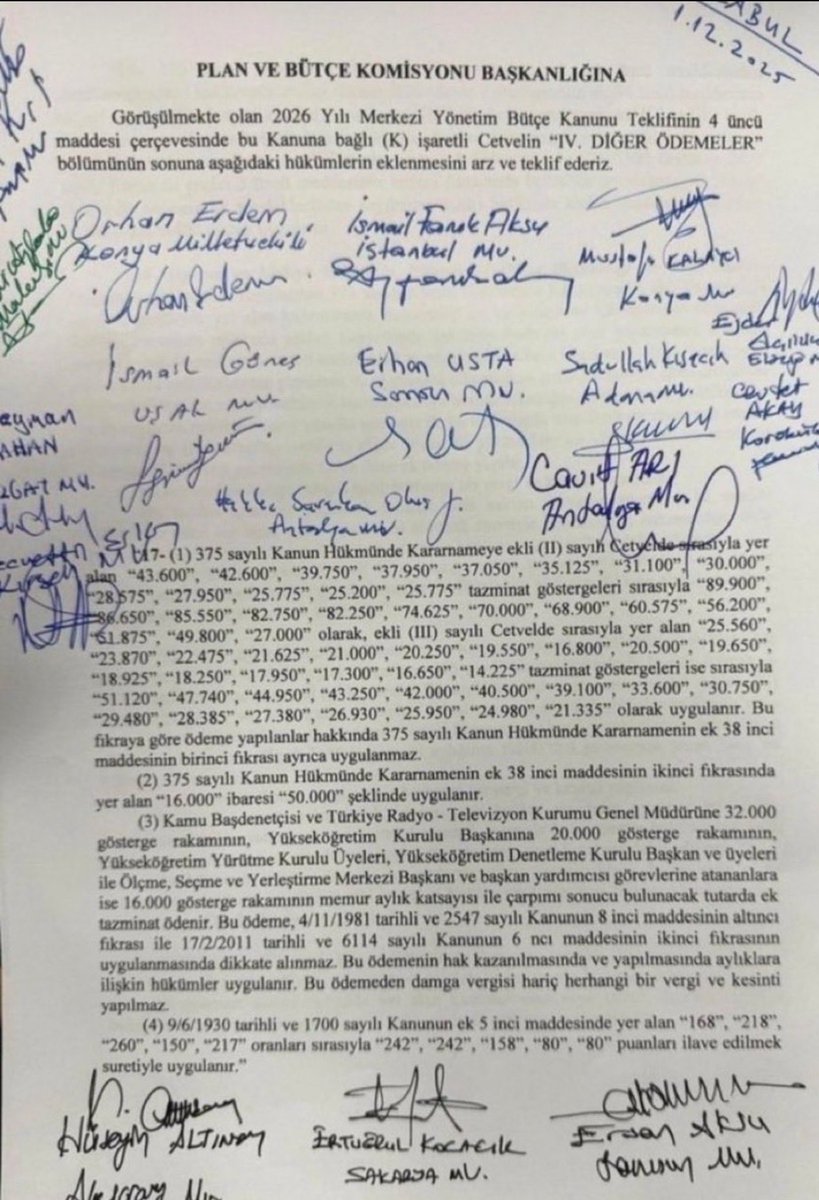 ABUL
1.12.2025
PLAN VE BÜTÇE KOMİSYONU BAŞKANLIĞINA
Görüşülmekte olan 2026 Yılı Merkezi Yönetim Bütçe Kanunu Teklifinin 4 üncü
maddesi çerçevesinde bu Kanuna bağlı (K) işaretli Cetvelin “IV. DİĞER ÖDEMELER”
bölümünün sonuna aşağıdaki hükümlerin eklenmesini arz ve teklif ederiz.
Orhan Erdem
Konya Milletvekili
İsmail Faruk Aksu
İstanbul Mv.
Mustafa KALAYCI
Konya Mv
İsmail Güneş
UŞAK MV.
Erhan USTA
Samsun MV.
Sadullah Kısacık
Adana Mv.
Ejder
Açıkkapı
Elazığ
Cevdet
AKAY
Karabük
Cavit ARI
Antalya Mv
Antalya Mv.
17- (1) 375 sayılı Kanun Hükmünde Kararnameye ekli (II) sayılı Cetvelde sırasıyla yer
alan “43.600”, “42.600”, “39.750”, “37.950”, “37.050”, “35.125”, “31.100”, “30.000”,
“28.575”, “27.950”, “25.775”, “25.200”, “25.775” tazminat göstergeleri sırasıyla “89.900”,
“86.650”, “85.550”, “82.750”, “82.250”, “74.625”, “70.000”, “68.900”, “60.575”, “56.200”,
“51.875”, “49.800”, “27.000” olarak, ekli (III) sayılı Cetvelde sırasıyla yer alan “25.560”,
“23.870”, “22.475”, “21.625”, “21.000”, “20.250”, “19.550”, “16.800”, “20.500”, “19.650”,
“18.925”, “18.250”, “17.950”, “17.300”, “16.650”, “14.225” tazminat göstergeleri ise sırasıyla
“51.120”, “47.740”, “44.950”, “43.250”, “42.000”, “40.500”, “39.100”, “33.600”, “30.750”,
“29.480”, “28.385”, “27.380”, “26.930”, “25.950”, “24.980”, “21.335” olarak uygulanır. Bu
fıkraya göre ödeme yapılanlar hakkında 375 sayılı Kanun Hükmünde Kararnamenin ek 38 inci
maddesinin birinci fıkrası ayrıca uygulanmaz.
(2) 375 sayılı Kanun Hükmünde Kararnamenin ek 38 inci maddesinin ikinci fıkrasında
yer alan “16.000” ibaresi “50.000” şeklinde uygulanır.
(3) Kamu Başdenetçisi ve Türkiye Radyo - Televizyon Kurumu Genel Müdürüne 32.000
gösterge rakamının, Yükseköğretim Kurulu Başkanına 20.000 gösterge rakamının,
Yükseköğretim Yürütme Kurulu Üyeleri, Yükseköğretim Denetleme Kurulu Başkan ve üyeleri
ile Ölçme, Seçme ve Yerleştirme Merkezi Başkanı ve başkan yardımcısı görevlerine atananlara
ise 16.000 gösterge rakamının memur aylık katsayısı ile çarpımı sonucu bulunacak tutarda ek
tazminat ödenir. Bu ödeme, 4/11/1981 tarihli ve 2547 sayılı Kanunun 8 inci maddesinin altıncı
fıkrası ile 17/2/2011 tarihli ve 6114 sayılı Kanunun 6 ncı maddesinin ikinci fıkrasının
uygulanmasında dikkate alınmaz. Bu ödemenin hak kazanılmasında ve yapılmasında aylıklara
ilişkin hükümler uygulanır. Bu ödemeden damga vergisi hariç herhangi bir vergi ve kesinti
yapılmaz.
(4) 9/6/1930 tarihli ve 1700 sayılı Kanunun ek 5 inci maddesinde yer alan “168”, “218”,
“260”, “150”, “217” oranları sırasıyla “242”, “242”, “158”, “80”, “80” puanları ilave edilmek
suretiyle uygulanır.”
Hüseyin ALTINSOY
Aksaray Mv
ERTUĞRUL KOCACIK
SAKARYA MV.
Ersan AKSU
Samsun Mv.